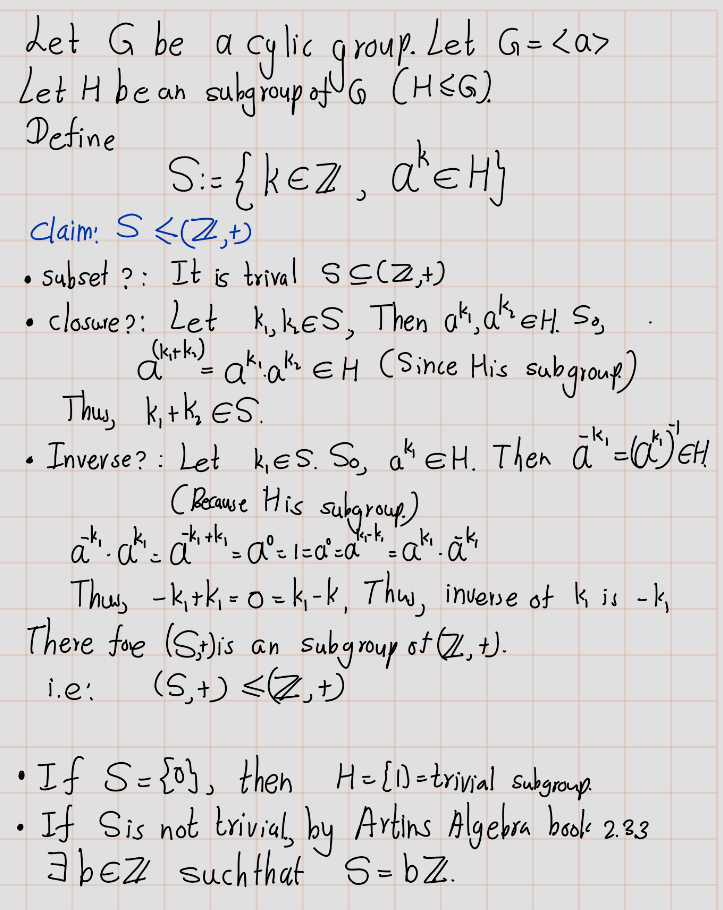 Let G be a cylic group. Let G = <a>
Let H be an subgroup of G (H ≤ G).
Define
S := { k ∈ ℤ , a^k ∈ H}
claim: S ≤ (ℤ,+)
• subset ?: It is trival S ⊆ (ℤ,+)
• closure?: Let k₁, k₂ ∈ S, Then a^k₁, a^k₂ ∈ H. So,
a^(k₁+k₂) = a^k₁ . a^k₂ ∈ H (Since H is subgroup)
Thus, k₁ + k₂ ∈ S.
• Inverse? : Let k₁ ∈ S. So, a^k₁ ∈ H. Then a^-k₁ = (a^k₁)^-1 ∈ H.
(Because H is subgroup.)
a^-k₁ . a^k₁ = a^-k₁+k₁ = a^0 = 1 = a^0 = a^k₁-k₁ = a^k₁ . a^-k₁
Thus, -k₁ + k₁ = 0 = k₁ - k, Thus, inverse of k₁ is -k₁
There fore (S,+) is an subgroup of (ℤ, +).
i.e: (S,+) ≤ (ℤ,+)
• If S = {0}, then H = {1} = trivial subgroup.
• If S is not trivial, by Artins Algebra book 2.3.3
∃ b ∈ ℤ such that S = bℤ.